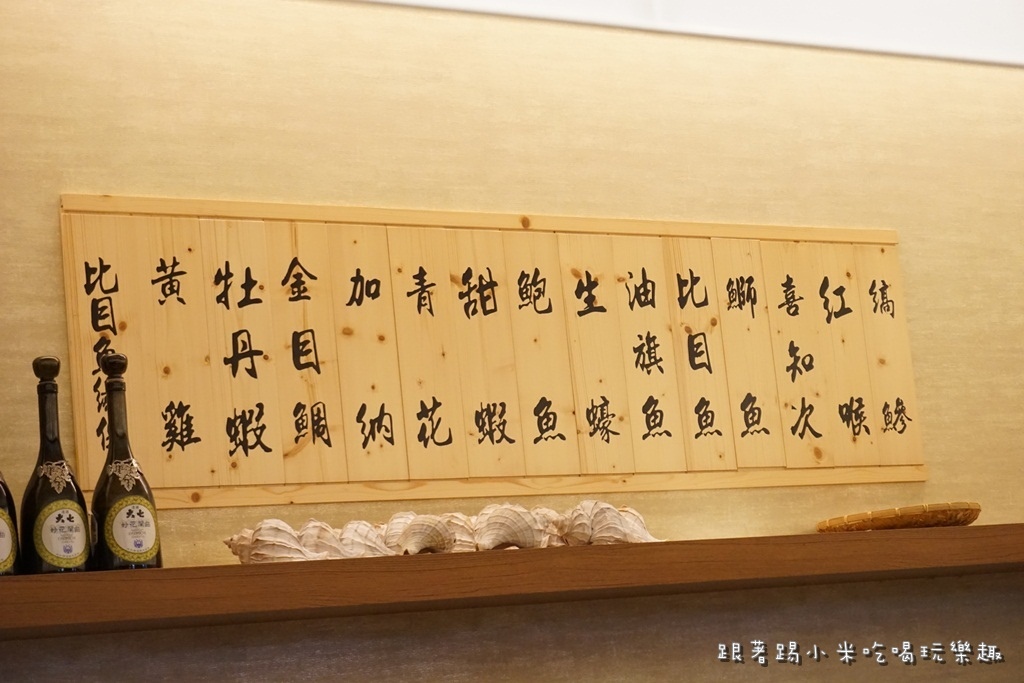 縞鰺
红喉
喜知次
鰤魚
比目魚
油旗魚
生蠔
鮑魚
甜蝦
青花
加納
金目鯛
牡丹蝦
黃雞
比目魚
大七
妙花闌曲
跟著踢小米吃喝玩樂趣